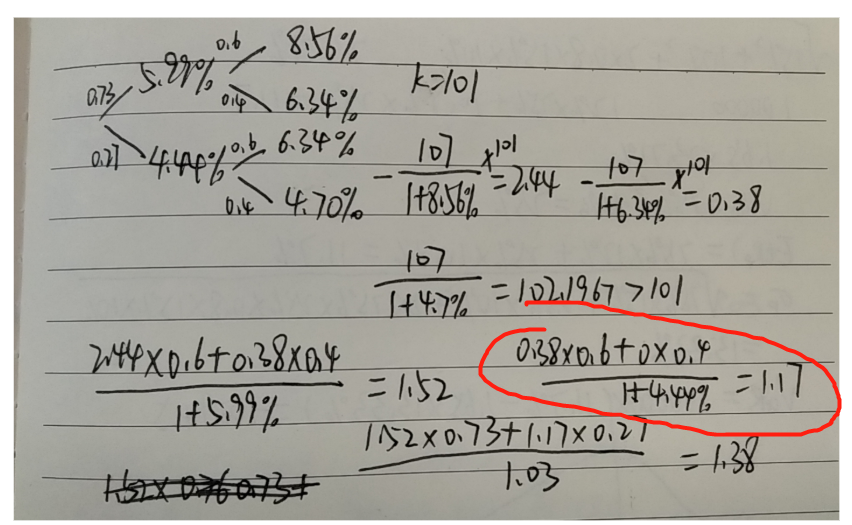 0.6 8.56%
0.73 5.99% k=101
0.4 6.34%
0.27 4.44% 0.6 6.34%
0.4 4.70%
-107/(1+8.56%) +101 = 2.44 -107/(1+6.34%) +101 = 0.38
107/(1+4.7%) = 102.1967 > 101
(2.44×0.6+0.38×0.4)/(1+5.99%) = 1.52 (0.38×0.6+0×0.4)/(1+4.44%) = 1.17
(1.52×0.73+1.17×0.27)/1.03 = 1.38